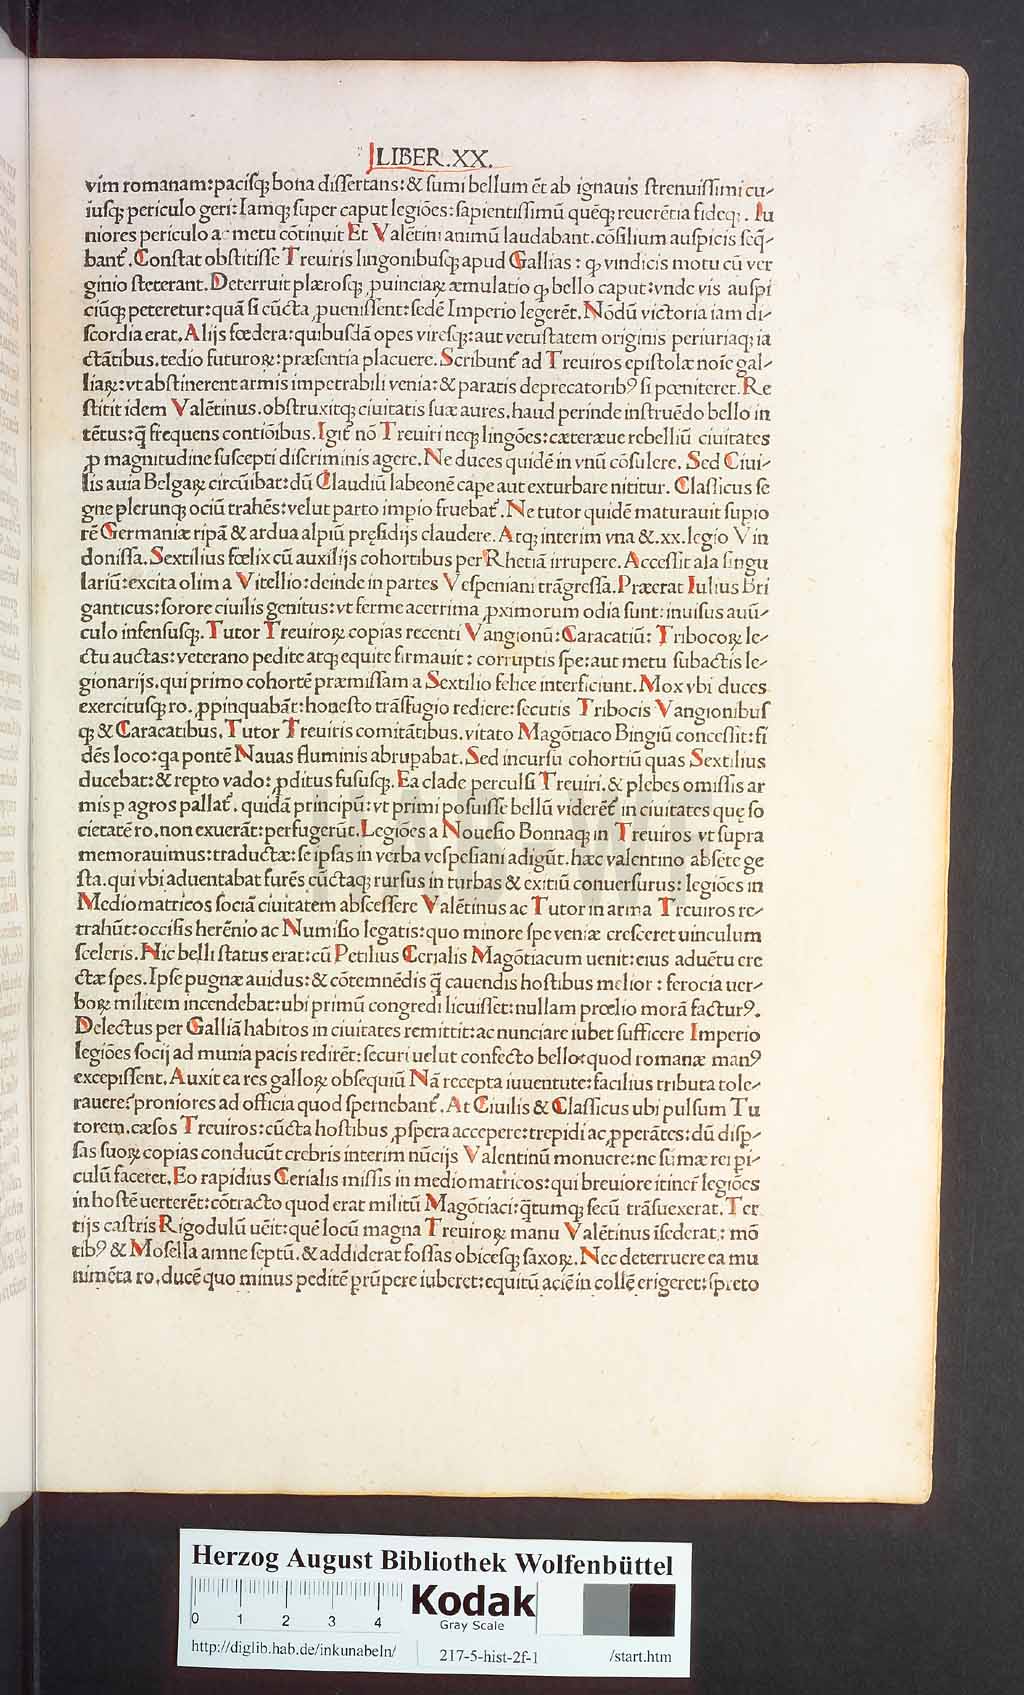 LIBER.XX.
vim romanam:pacisq; bona dissertans:& sumi bellum ēt ab ignauis strenuissimi cu-
iusq; periculo geri:Iamq; super caput legiões:sapientissimū quēq; reuerētia fideq;. Iu
niores periculo ac metu cōtinuit Et Valētini animū laudabant.cōsilium auspicis seq̄-
bant᷑.Constat obstitisse Treuiris lingonibusq; apud Gallias: ꝙ vindicis motu cū ver
ginio steterant.Deterruit plærosq; ꝓuinciaꝝ æmulatio ꝙ bello caput:vnde vis auspi
ciūq; peteretur:quā si cūcta ꝓuenissent:sedē Imperio legerēt.Nōdū victoria iam di-
scordia erat.Alijs fœdera:quibusdā opes viresq;:aut vetustatem originis periuriaq; ia
ctātibus.tedio futuroꝝ:præsentia placuere.Scribunt᷑ ad Treuiros epistolæ noīe gal-
liaꝝ:vt abstinerent armis impetrabili venia:& paratis deprecatoribꝰ si pœniteret.Re
stitit idem Valētinus.obstruxitq; ciuitatis suæ aures.haud perinde instruēdo bello in
tētus:q̄ frequens contiōibus.Igit᷑ nō Treuiri neq; lingōes:cæteræue rebelliū ciuitates
ꝓ magnitudine suscepti discriminis agere.Ne duces quidē in vnū cōsulere. Sed Ciui-
lis auia Belgaꝝ circūibat:dū Claudiū labeonē cape aut exturbare nititur. Classicus se
gne plerunq; ociū trahēs:velut parto impio fruebat᷑.Ne tutor quidē maturauit supio
rē Germaniæ ripā & ardua alpiū pręsidijs claudere. Atq; interim vna &.xx.legio Vin
donissa.Sextilius fœlix cū auxilijs cohortibus per Rhetiā irrupere. Accessit ala singu
lariū:excita olim a Vitellio:deinde in partes Vespeniani trāgressa.Præerat Iulius Bri
ganticus:sorore ciuilis genitus:vt ferme acerrima ꝓximorum odia sunt:inuisus auū-
culo infensusq;.Tutor Treuiroꝝ copias recenti Vangionū:Caracatiū: Tribocoꝝ le-
ctu auctas:veterano pedite atq; equite firmauit: corruptis spe:aut metu subactis le-
gionarijs.qui primo cohortē præmissam a Sextilio felice interficiunt.Mox vbi duces
exercitusq; ro.ꝓpinquabāt:honesto trāsfugio rediere:secutis Tribocis Vangionibus
q; & Caracatibus.Tutor Treuiris comitātibus.vitato Magōtiaco Bingiū concessit:fi
dēs loco:qa pontē Nauas fluminis abrupabat.Sed incursu cohortiū quas Sextilius
ducebat:& repto vado:ꝓditus fususq;.Ea clade perculsi Treuiri.& plebes omissis ar
mis p agros pallat᷑.quidā principū:vt primi posuisse bellū viderēt᷑ in ciuitates quę so
cietatē ro.non exuerāt:perfugerūt.Legiões a Nouesio Bonnaq; in Treuiros vt supra
memorauimus:traductæ:se ipsas in verba vespesiani adigūt.hæc valentino absēte ge
sta.qui vbi aduentabat furēs cūctaq; rursus in turbas & exitiū conuersurus: legiões in
Mediomatricos sociā ciuitatem abscessere Valētinus ac Tutor in arma Treuiros re-
trahūt:occisis herēnio ac Numisio legatis:quo minore spe veniæ cresceret uinculum
sceleris.Hic belli status erat:cū Petilius Cerialis Magōtiacum uenit:eius aduētu ere
ctæ spes.Ipse pugnæ auidus:& cōtemnēdis q̄ cauendis hostibus melior: ferocia uer-
boꝝ militem incendebat:ubi primū congredi licuisset:nullam prœlio morā facturꝰ.
Delectus per Galliā habitos in ciuitates remittit:ac nunciare iubet sufficere Imperio
legiões socij ad munia pacis redirēt:securi uelut confecto bello:quod romanæ manꝰ
excepissent.Auxit ea res galloꝝ obsequiū Nā recepta iuuentute:facilius tributa tole-
rauere:proniores ad officia quod spernebant᷑.At Ciuilis & Classicus ubi pulsum Tu
torem.cæsos Treuiros:cūcta hostibus ꝓspera accepere:trepidi ac ꝓperātes:dū disp-
sas suoꝝ copias conducūt crebris interim nūcijs Valentinū monuere:ne sūmæ rei pi-
culū faceret.Eo rapidius Cerialis missis in mediomatricos:qui breuiore itiner̄ legiões
in hostē uerterēt:cōtracto quod erat militū Magōtiaci:q̄tumq; secū trāsuexerat.Ter
tijs castris Rigodulū uēit:quē locū magna Treuiroꝝ manu Valētinus īsederat: mō
tibꝰ & Mosella amne septū.& addiderat fossas obicesq; saxoꝝ.Nec deterruere ea mu
nimēta ro.ducē quo minus peditē prūpere iuberet:equitū aciē in collē erigeret:spreto
Herzog August Bibliothek Wolfenbüttel
0 1 2 3 4
Kodak
Gray Scale
http://diglib.hab.de/inkunabeln/ 217-5-hist-2f-1 /start.htm